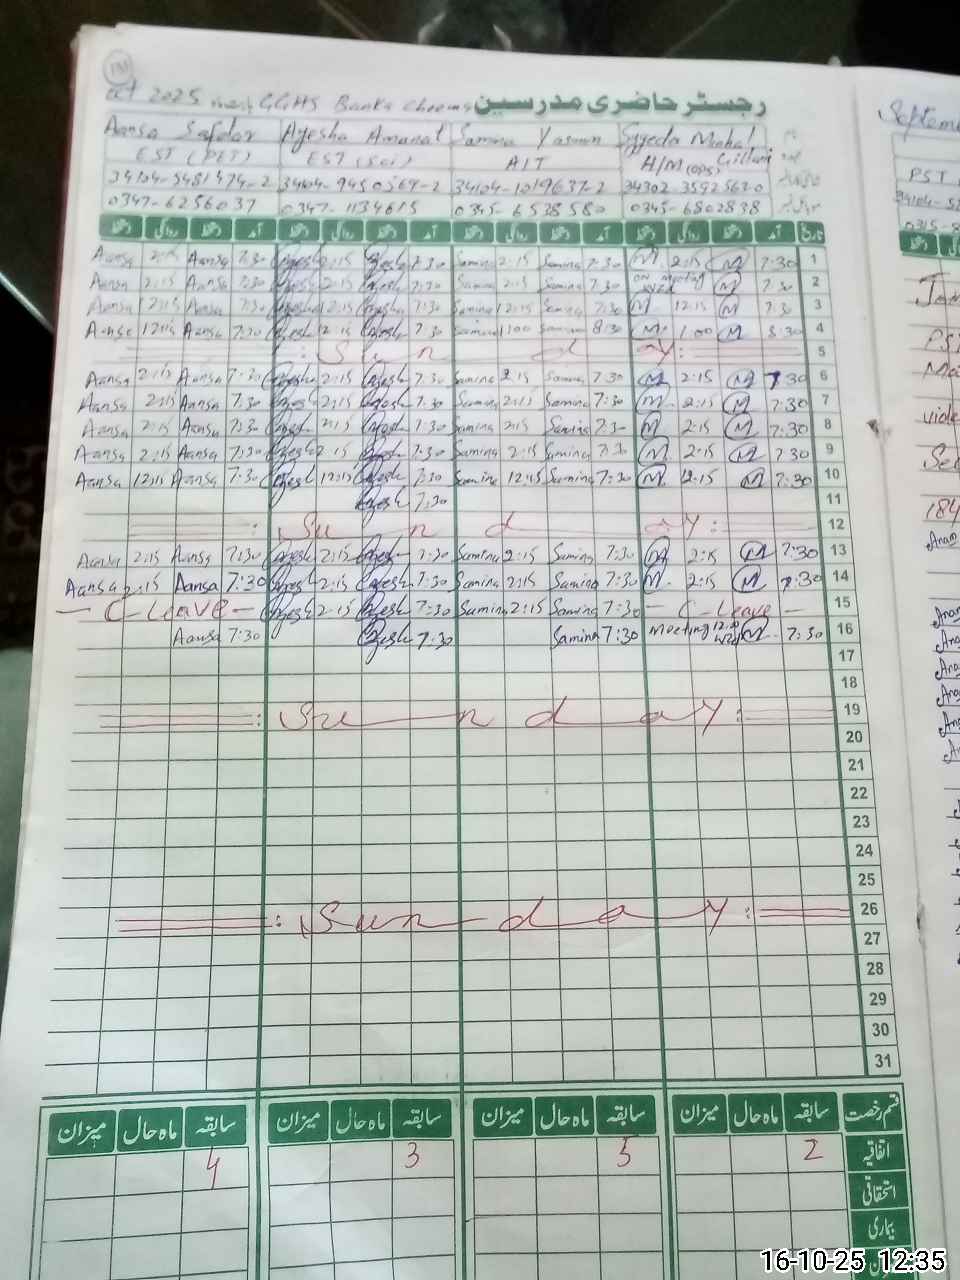 Oct 2025 GGHS Banka Cheema رجسٹر حاضری مدرسین
Aansa Safdar Ayesha Amanat Samina Yasmin Syyeda Minhal Gillani
EST (PET) EST (Sci) AIT H/M (OPS)
34104-5481474-2 34104-9450569-2 34104-1019637-2 34302 3592562-0
0347-6256037 0347-1134615 0345-6528580 0345-6802838
دستخط روانگی دستخط آمد دستخط روانگی دستخط آمد دستخط روانگی دستخط آمد دستخط روانگی دستخط آمد تاریخ
Aansa 2:15 Aansa 7:30 Ayesh 2:15 Ayesh 7:30 Samina 2:15 Samina 7:30 M 2:15 M 7:30 1
Aansa 2:15 Aansa 7:30 Ayesh 2:15 Ayesh 7:30 Samina 2:15 Samina 7:30 on meeting WZD M 7:30 2
Aansa 12:15 Aansa 7:30 Ayesh 12:15 Ayesh 7:30 Samina 12:15 Samina 7:30 M 12:15 M 7:30 3
Aansa 12:15 Aansa 7:30 Ayesh 12:15 Ayesh 7:30 Samina 1:00 Samina 8:30 M 1:00 M 8:30 4
: Sunday : 5
Aansa 2:15 Aansa 7:30 Ayesh 2:15 Ayesh 7:30 Samina 2:15 Samina 7:30 M 2:15 M 7:30 6
Aansa 2:15 Aansa 7:30 Ayesh 2:15 Ayesh 7:30 Samina 2:15 Samina 7:30 M 2:15 M 7:30 7
Aansa 2:15 Aansa 7:30 Ayesh 2:15 Ayesh 7:30 Samina 2:15 Samina 7:30 M 2:15 M 7:30 8
Aansa 2:15 Aansa 7:30 Ayesh 2:15 Ayesh 7:30 Samina 2:15 Samina 7:30 M 2:15 M 7:30 9
Aansa 12:15 Aansa 7:30 Ayesh 12:15 Ayesh 7:30 Samina 12:15 Samina 7:30 M 12:15 M 7:30 10
Ayesh 7:30 11
: Sunday : 12
Aansa 2:15 Aansa 7:30 Ayesh 2:15 Ayesh 7:30 Samina 2:15 Samina 7:30 M 2:15 M 7:30 13
Aansa 2:15 Aansa 7:30 Ayesh 2:15 Ayesh 7:30 Samina 2:15 Samina 7:30 M 2:15 M 7:30 14
— C-Leave — Ayesh 2:15 Ayesh 7:30 Samina 2:15 Samina 7:30 — C-Leave — 15
Aansa 7:30 Ayesh 7:30 Samina 7:30 Meeting WZD M 7:30 16
17
18
: Sunday : 19
20
21
22
23
24
25
: Sunday : 26
27
28
29
30
31
میزان ماہ حال سابقہ میزان ماہ حال سابقہ میزان ماہ حال سابقہ میزان ماہ حال سابقہ قسم رخصت
4 3 5 2 اتفاقیہ
استحقاقی
بیماری
PST
184
16-10-25 12:35